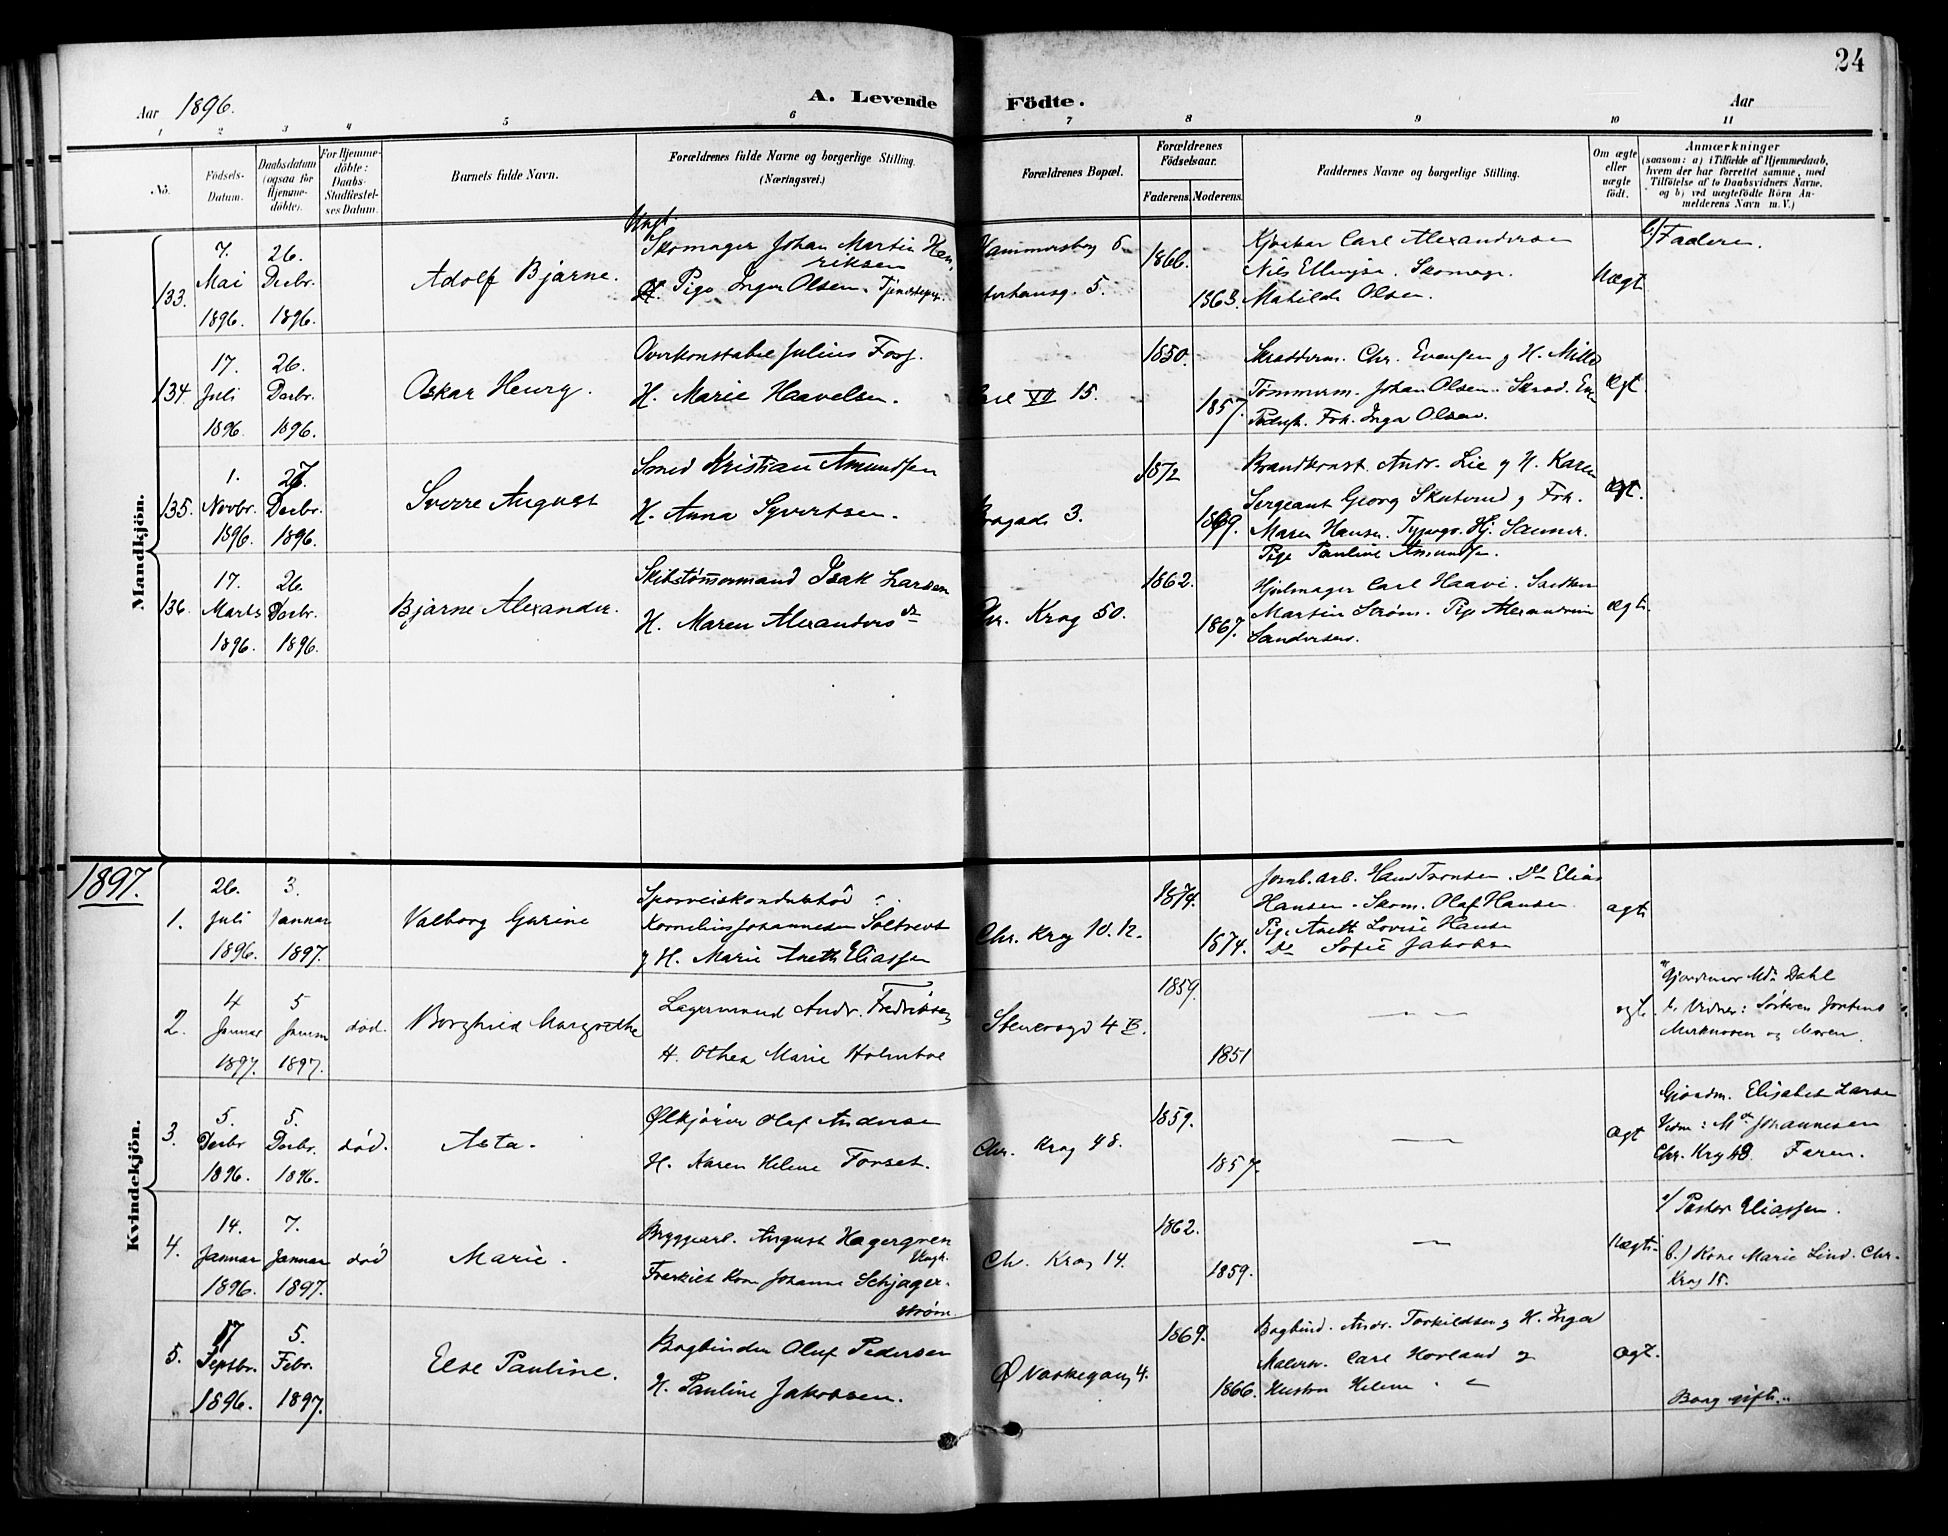 24
Aar 1896.
A. Levende Födte.
Aar
1 2 3 4 5 6 7 8 9 10 11
No.
Födsels-
Datum.
Daabsdatum
(ogsaa for
Hjemme-
döbte).
For Hjemme-
döbte:
Daabs-
Stadfæstel-
ses Datum.
Barnets fulde Navn.
Forældrenes fulde Navne og borgerlige Stilling.
(Næringsvei.)
Forældrenes Bopæl.
Forældrenes
Födselsaar.
Faderens. Moderens.
Faddernes Navne og borgerlige Stilling.
Om ægte
eller
uægte
født.
Anmærkninger
(saasom: a) i Tilfælde af Hjemmedaab,
hvem der har forrettet samme, med
Tilföielse af to Daabsvidners Navne,
og b) ved uægtefödte Börn An-
melderens Navn m. V.)
Mandkjön.
133.
7.
Mai
1896.
26.
Decbr.
1896.
Adolf Bjarne.
Ungk.
Skomager Johan Martin Hen-
riksen
Pige Inga Olsen.
Hammersborg 6
5.
1866.
1863.
Carl Alexandersen
Nils Ellingsen. Skomager.
Matilde Olsen.
Uægt
b/ Faderen.
134.
17.
Juli
1896
26.
Decbr.
1896.
Oskar Henry.
Overkonstabel Julius Fors.
H. Marie Haavelsen.
XII 15.
1850.
1857.
Skrædderm. Chr. Evensen og H. Milla
Tømmerm. Johan Olsen.
Frk. Inga Olsen.
ægt.
135.
1.
Novbr.
1896.
27
Decbr.
1896.
Sverre August
Smed Kristian Amundsen
H. Anna Syvertsen.
3.
1872
1869.
Brandkonst. Andr. Lie og H. Karen
Sergeant Georg Skutvud og Frk.
Maren Hansen. Typogr. Hj. Sanner.
Pige Pauline Amundsen.
ægt.
136.
17.
Marts
1896.
26.
Decbr.
1896.
Bjarne Alexander.
Skibstømmermand Isak Larsen
H. Maren Alexanders dr
Chr. Krog 50.
1862.
1867.
Hjulmager Carl Haavi.
Martin Strøm. Pige
Sandersen.
ægte
1897.
Kvindekjön.
1.
26.
Juli
1896.
3.
Januar
1897.
Valborg Gurine
Sporveiskonduktør
Kornelius Johannesen
og H. Marie Aneth Eliassen
Chr. Krog 10. 12.
1874.
1874.
Jernb. arb. Hans Tronsen. Do Elias
Hansen. Skom. Olaf Hansen.
Pige Aneth Lovise Hansen
Do Sofie Jakobsen
ægte
2.
4
Januar
1897.
5
Januar
1897.
død.
Borghild Margrethe
Lagermand Andr. Fredriksen
H. Othea Marie Holmboe
Stenersgd 4 B.
1859.
1851
— " —
ægte
a/ Gjordemor Md. Dahl
2 Vidner:
og Moren.
3.
5.
Decbr
1896.
5.
Decbr.
1896.
død.
Asta.
Ølkjører Olaf Andersen
H. Karen Helene Forset.
Chr. Krog 48.
1859.
1857.
—
ægt
Gjordm. Elisabet Larsen
Vidn: Md Johannesen
Chr. Krog 48. Faren.
4.
14.
Januar
1896.
7.
Januar
1897.
død
Marie.
Bryggearb. August Hagergren
Ungk.
Fraskilt Kone Johanne Schjager-
strøm.
Ch. Krog 14.
1862.
1859.
—
Uægte
a/ Pastor Eliassen.
b.) Kone Marie Lind. Chr.
Krog 15.
5.
17
Septbr.
1896.
5.
Febr.
1897.
Else Pauline.
Bogbinder Oluf Pedersen
H. Pauline Jakobsen.
Ø Vaskegang 4.
1869.
1866.
Bogbind. Andr. Torkildsen og H. Inga
Malerm. Carl Hovland og
Hustru Helene. "
ægt.
Borg. gift.